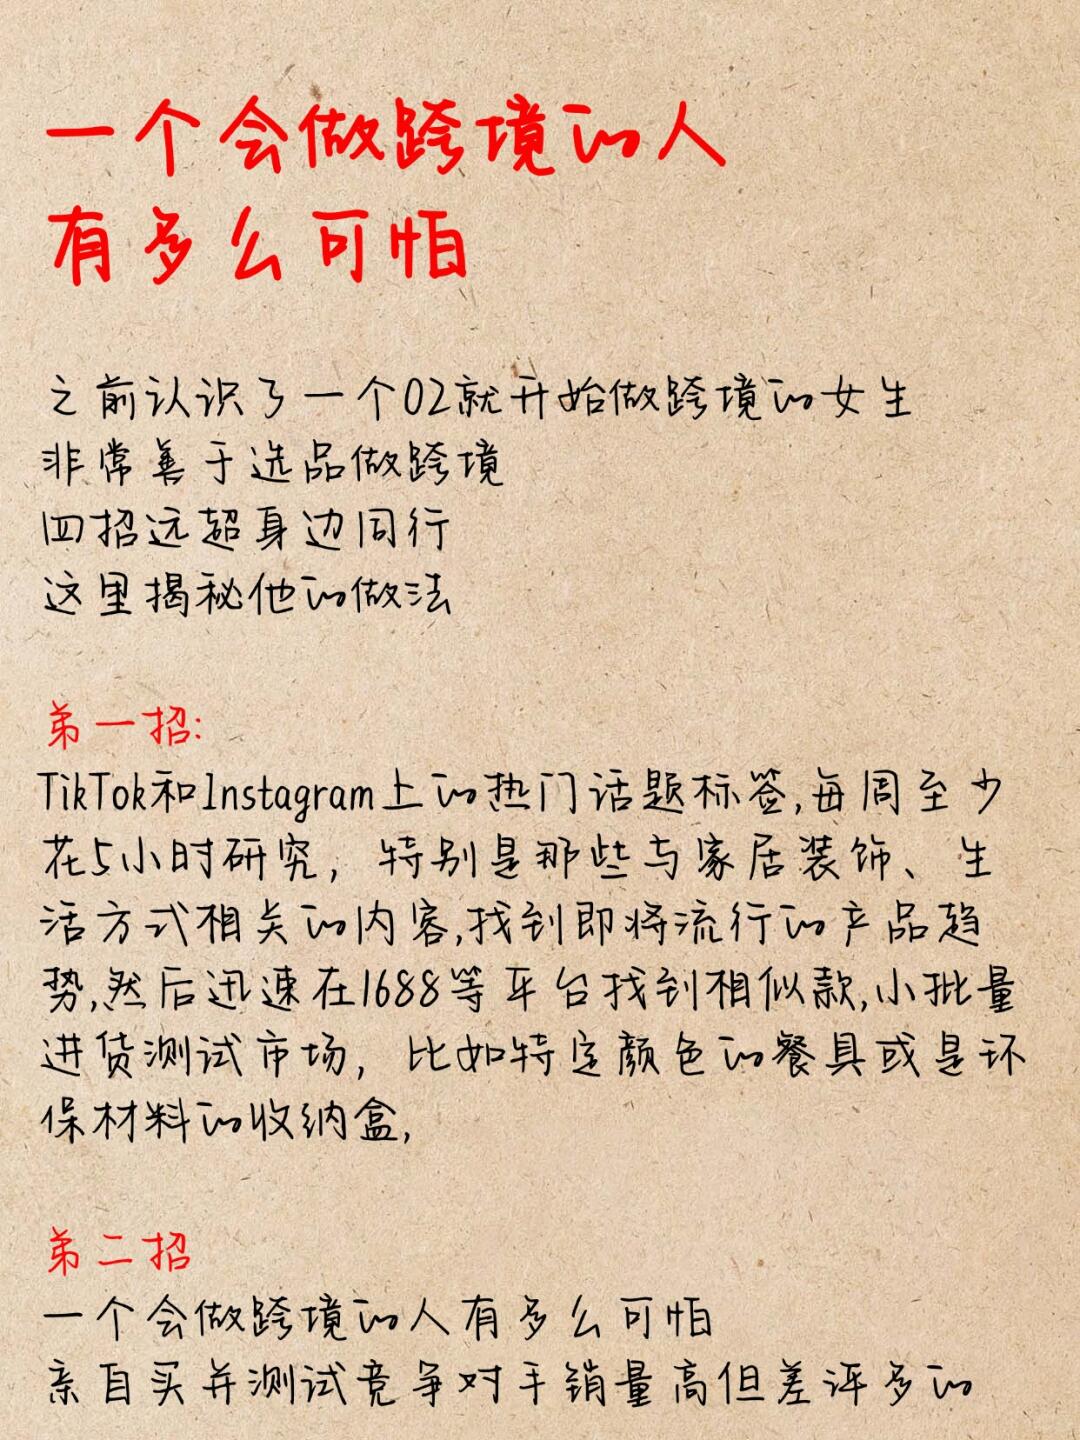 一个会做跨境的人
有多么可怕
之前认识了一个02就开始做跨境的女生
非常善于选品做跨境
四招远超身边同行
这里揭秘他的做法
第一招:
TikTok和Instagram上的热门话题标签,每周至少
花5小时研究，特别是那些与家居装饰、生
活方式相关的内容,找到即将流行的产品趋
势,然后迅速在1688等平台找到相似款,小批量
进货测试市场，比如特定颜色的餐具或是环
保材料的收纳盒,
第二招
一个会做跨境的人有多么可怕
亲自买并测试竞争对手销量高但差评多的